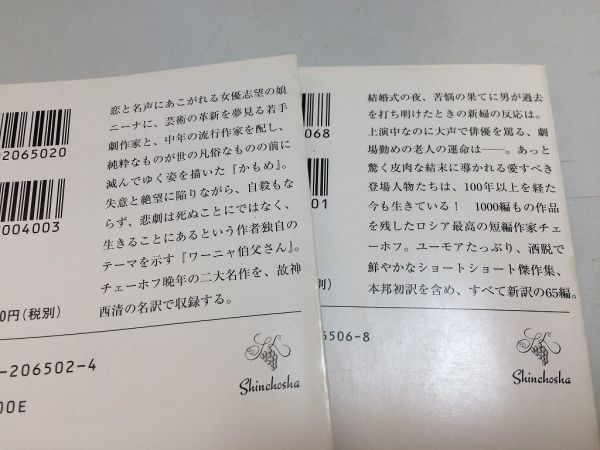 恋と名声にあこがれる女優志望の娘
ニーナに、芸術の革新を夢見る若手
劇作家と、中年の流行作家を配し、
純粋なものが世の凡俗なものの前に
滅んでゆく姿を描いた『かもめ』。
失意と絶望に陥りながら、自殺もな
らず、悲劇は死ぬことにではなく、
生きることにあるという作者独自の
テーマを示す『ワーニャ伯父さん』。
チェーホフ晩年の二大名作を、故神
西清の名訳で収録する。
02065020
004003
0円(税別)
-206502-4
00E
Shinchosha
結婚式の夜、苦悩の果てに男が過去
を打ち明けたときの新婦の反応は。
上演中なのに大声で俳優を罵る、劇
場勤めの老人の運命は――。あっと
驚く皮肉な結末に導かれる愛すべき
登場人物たちは、100年以上を経た
今も生きている! 1000編もの作品
を残したロシア最高の短編作家チェ
ーホフ。ユーモアたっぷり、洒脱で
鮮やかなショートショート傑作集、
本邦初訳を含め、すべて新訳の65編。
068
01
別)
6506-8
Shinchosha